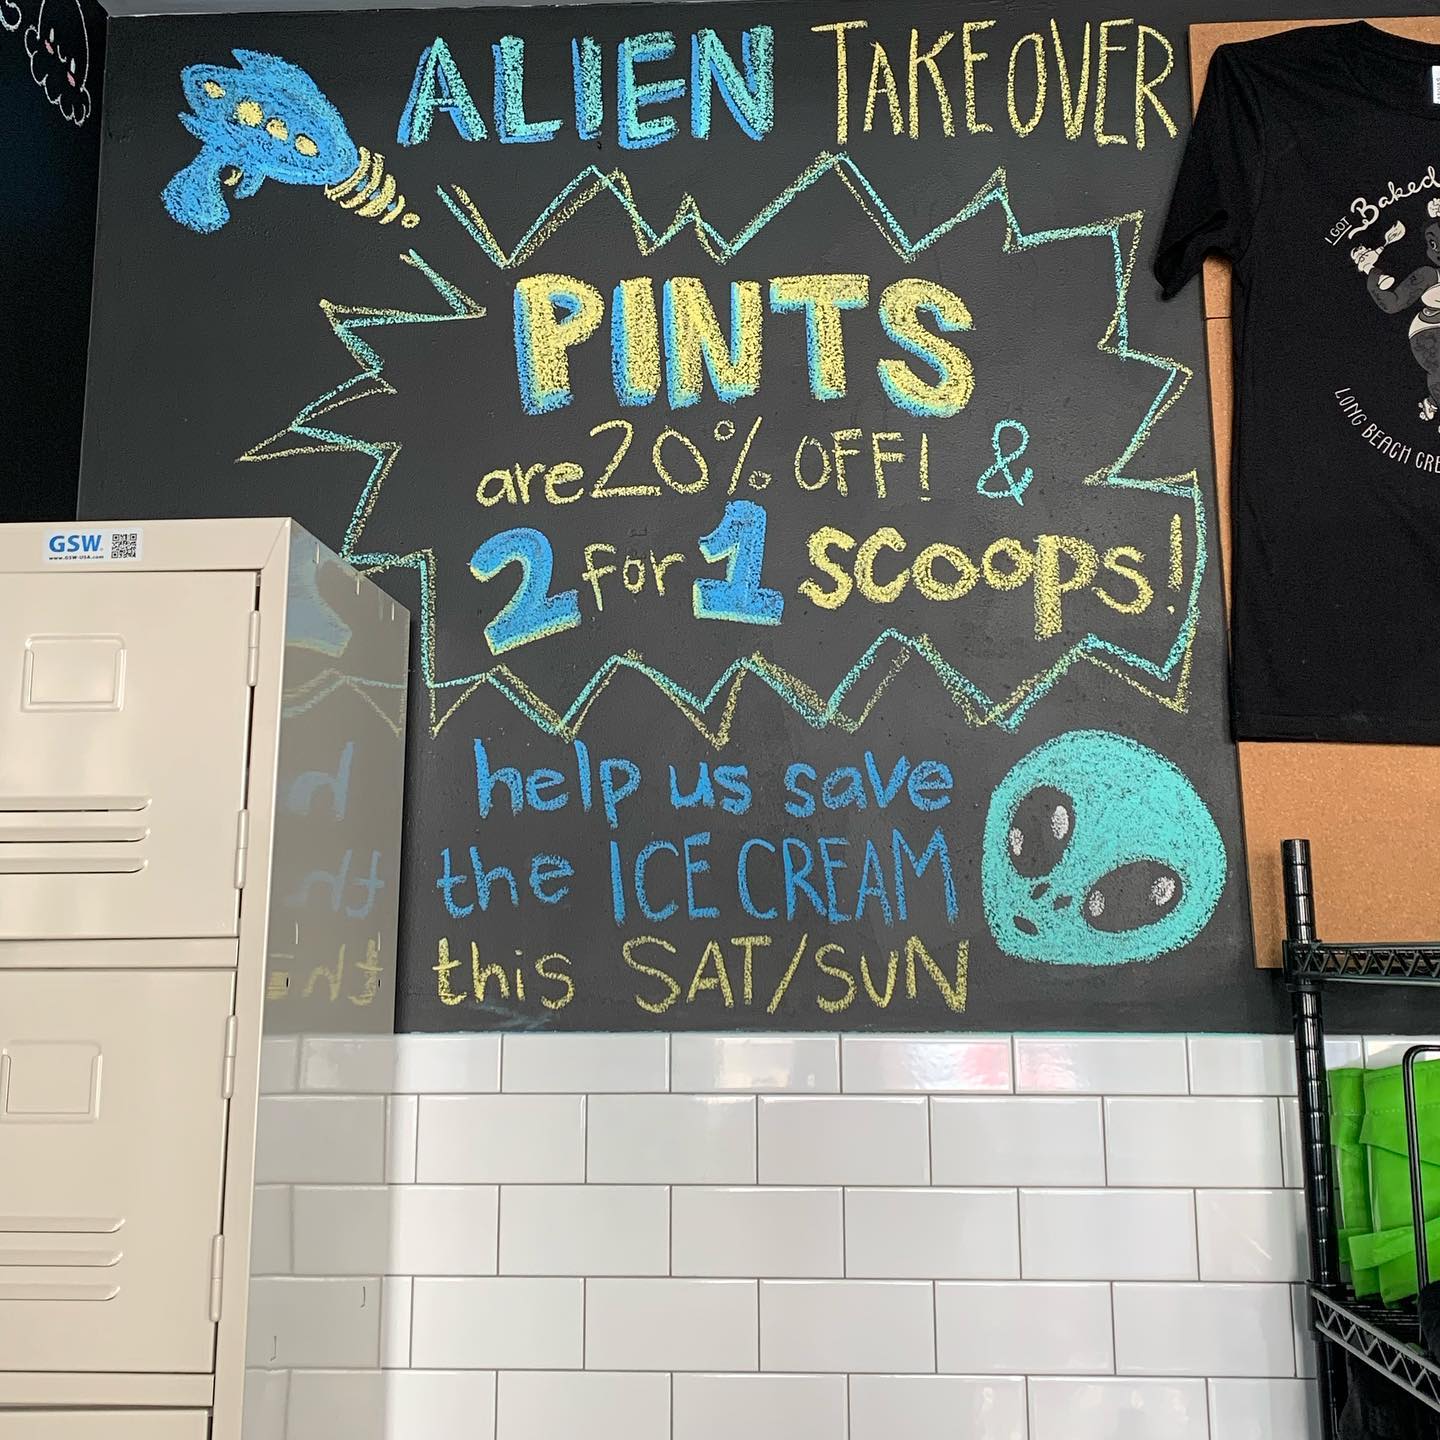 ALIEN TAKEOVER
PINTS
are 20% OFF! &
2 for 1 SCOOPS!
help us save
the ICE CREAM
this SAT/SUN
GSW
www.GSW-USA.com
I GOT Baked
LONG BEACH CRE